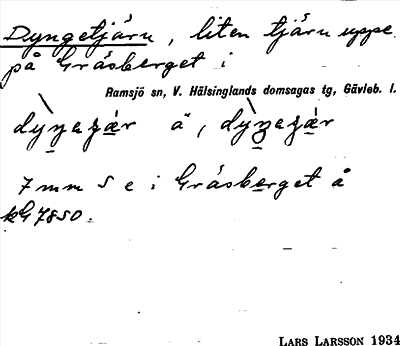 Dyngetjärn, liten tjärn uppe
på Gråsberget i
Ramsjö sn, V. Hälsinglands domsagas tg, Gävleb. l.
7 mm S e i Gråsberget å
kG7850.
LARS LARSSON 1934